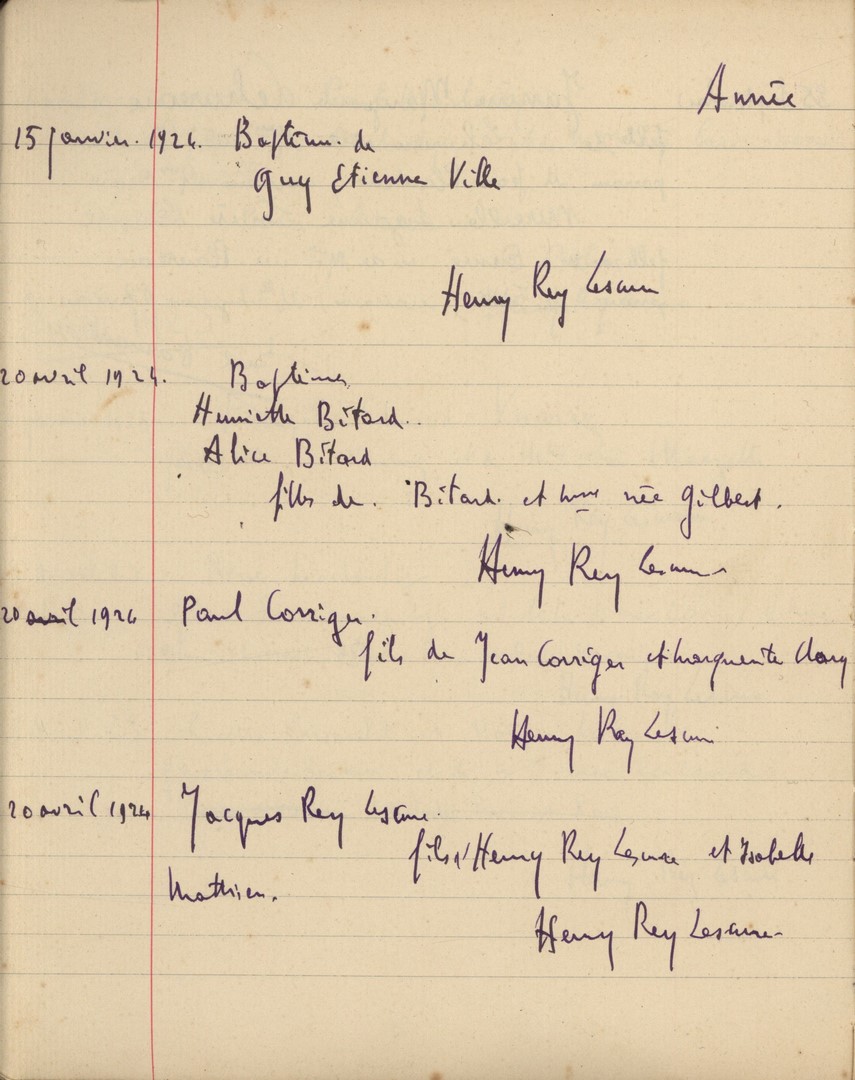 Année
15 janvier. 1924. Baptême. de
Guy Etienne Ville
Henry Rey Lescure
20 avril 1924. Baptêmes
Henriette Bitard..
Alice Bitard
filles de. Bitard. et Mme née Gilbert.
Henry Rey Lescure
20 avril 1924 Paul Corriger.
fils de Jean Corriger et Marguerite
Henry Rey Lescure
20 avril 1924 Jacques Rey Lescure.
fils d'Henry Rey Lescure et Isabelle
Mathieu.
Henry Rey Lescure